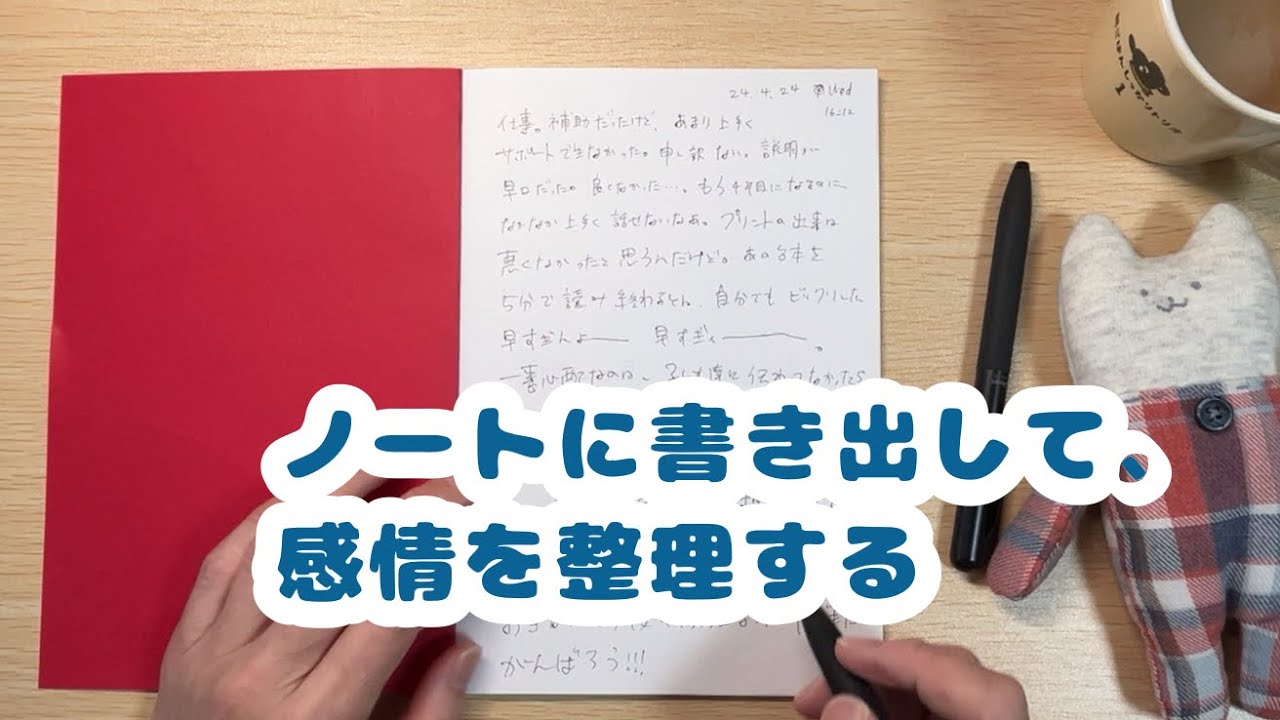 24.4.24 Wed
16:12
仕事。補助だったけど、あまり上手く
サポートできなかった。申し訳ない。説明が
早口だった。良くなかった…。もう4年目になるのに
なかなか上手く話せないなあ。プリントの出来は
悪くなかったと思うんだけど。あの台本を
5分で読み終わるとは、自分でもビックリした
早すぎんよー 早すぎィー。
一番心配なのは、
ノートに書き出して、
感情を整理する
がんばろう!!!
1